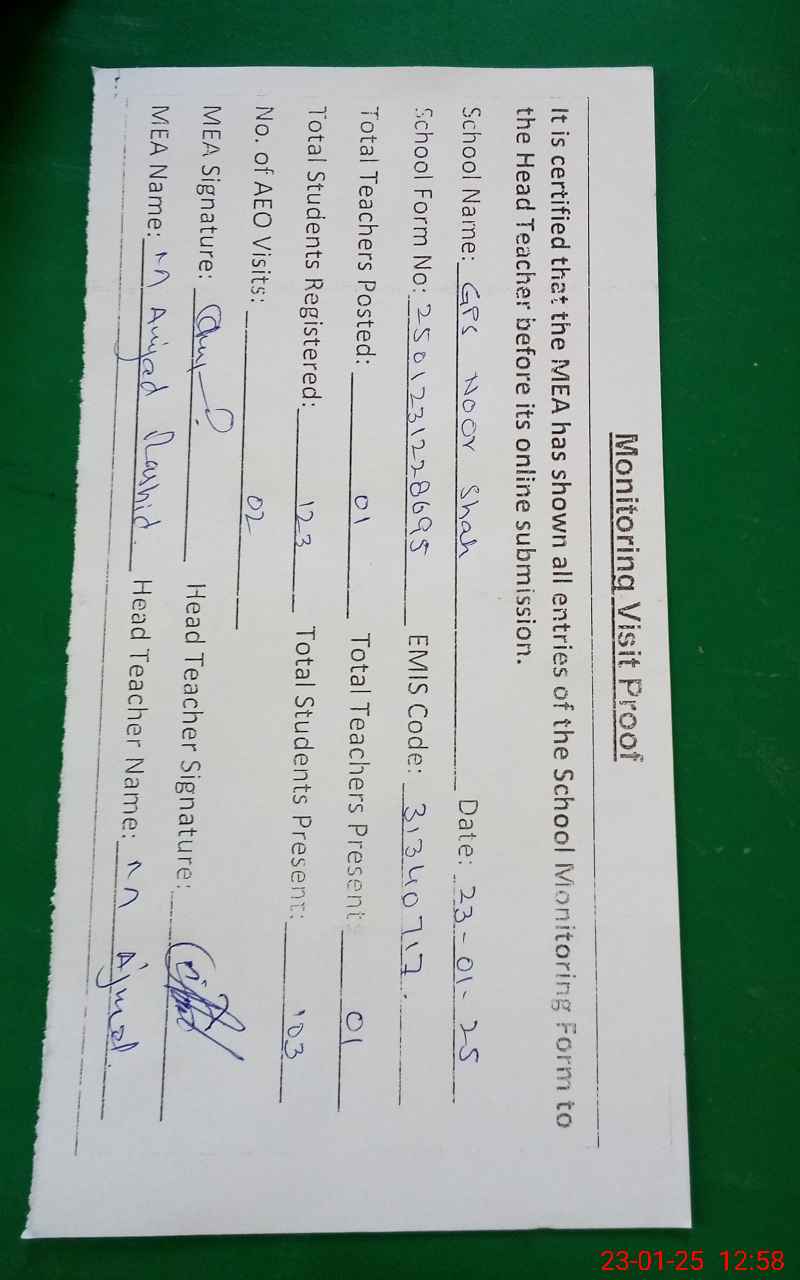 Monitoring Visit Proof
It is certified that the MEA has shown all entries of the School Monitoring Form to
the Head Teacher before its online submission.
School Name: GPS Noor Shah Date: 23-01-25
School Form No: 2501231228695 EMIS Code: 31340717.
Total Teachers Posted: 01 Total Teachers Present: 01
Total Students Registered: 123 Total Students Present: 103
No. of AEO Visits: 02
MEA Signature: Head Teacher Signature:
MEA Name: M Amjad Rashid. Head Teacher Name: M Ajmal.
23-01-25 12:58